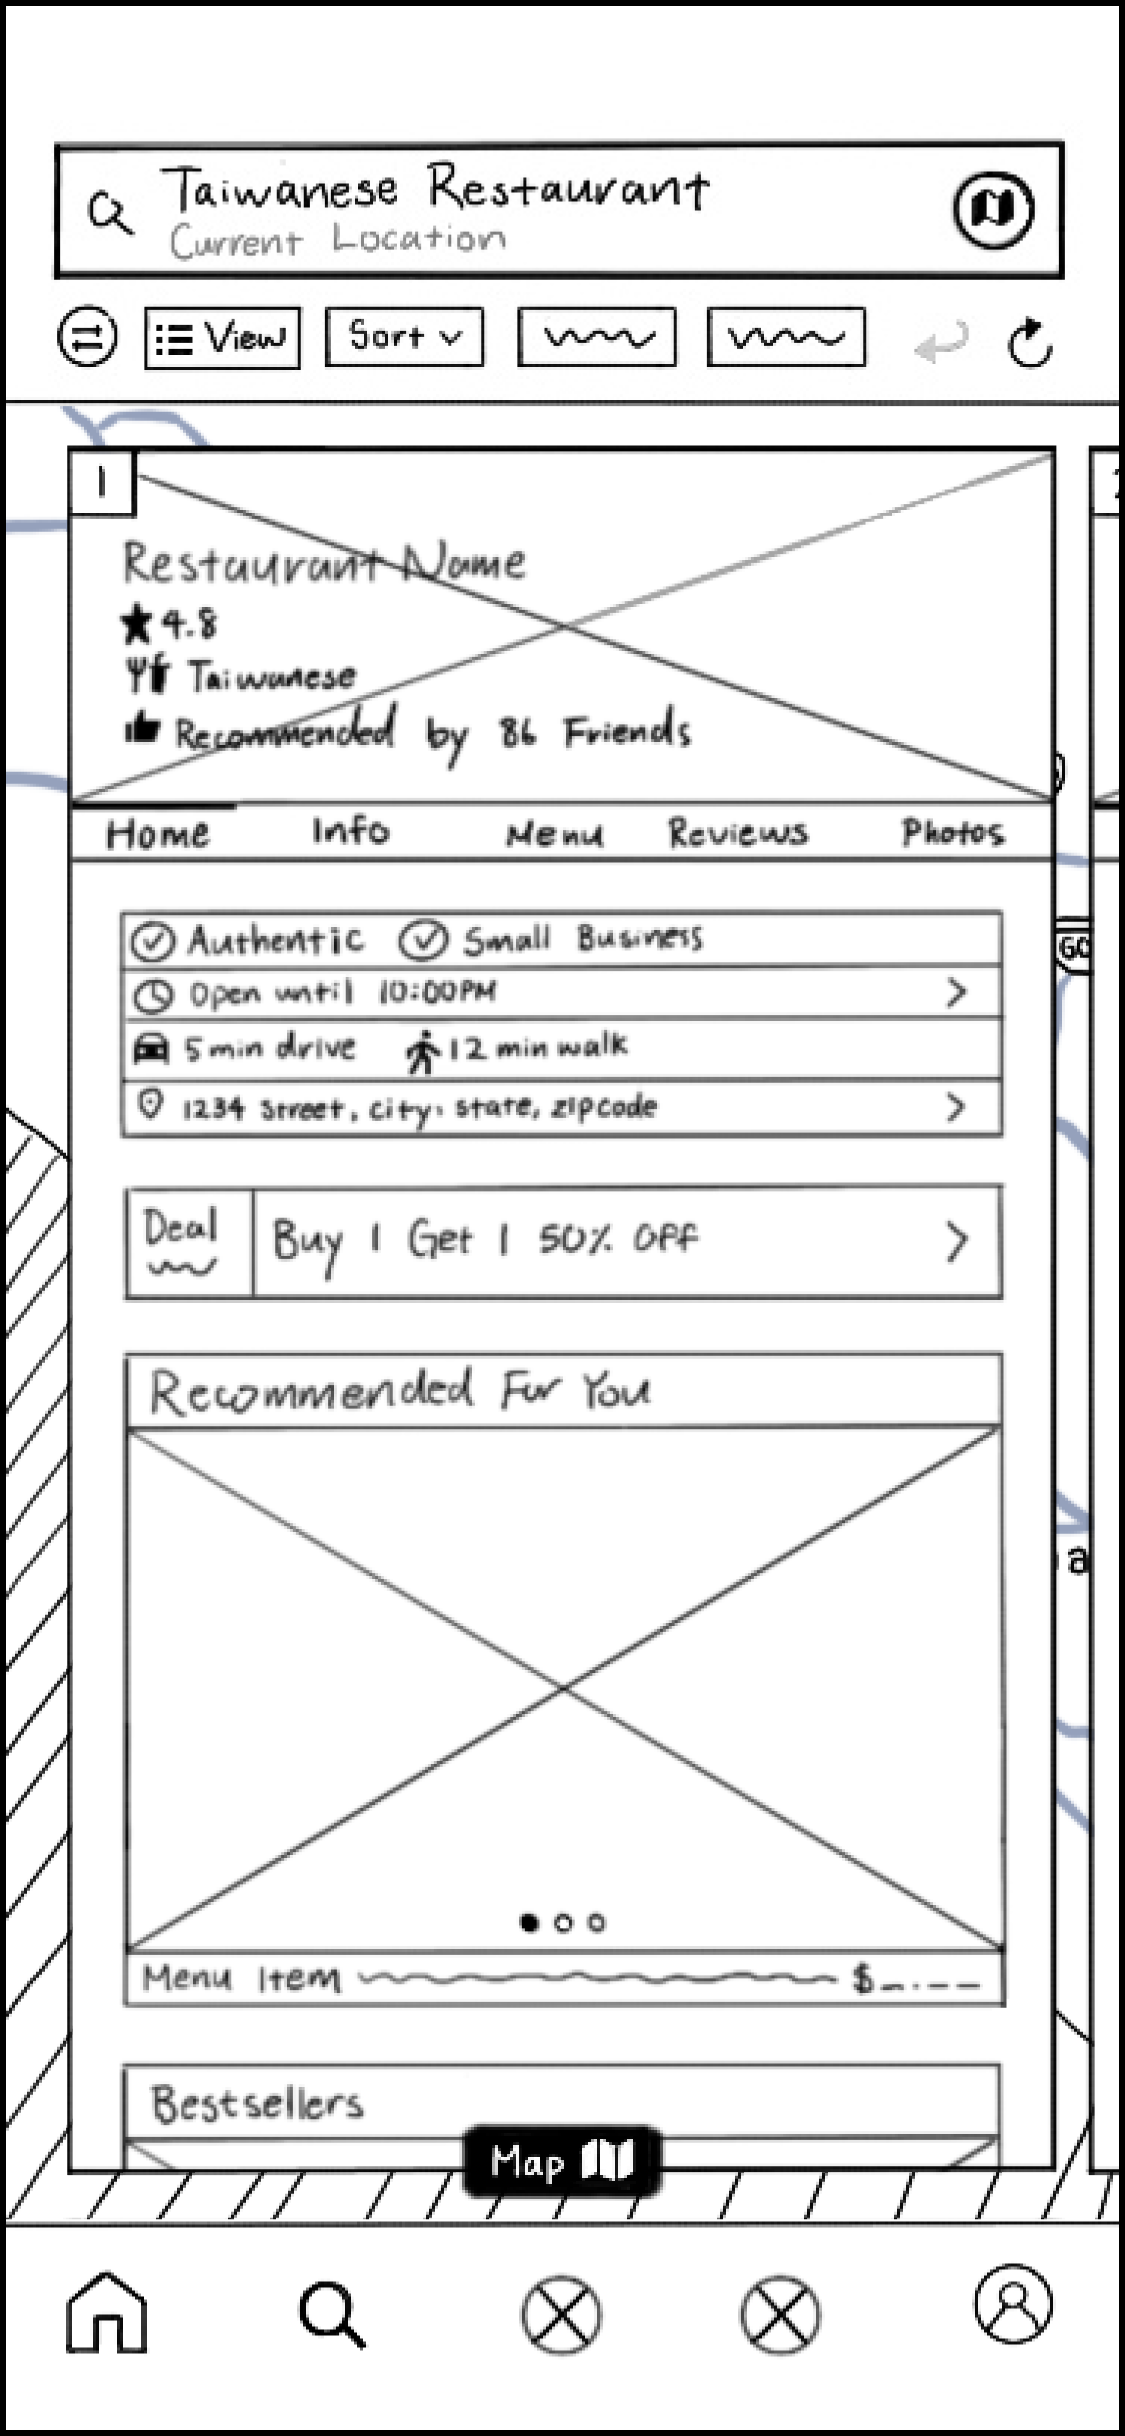 Taiwanese Restaurant
Current Location
View Sort
1
Restaurant Name
4.8
Taiwanese
Recommended by 86 Friends
Home Info Menu Reviews Photos
Authentic Small Business
Open until 10:00PM
5 min drive 12 min walk
1234 street, city, state, zipcode
Deal Buy 1 Get 1 50% OFF
Recommended For You
Menu Item $_.__
Bestsellers
Map